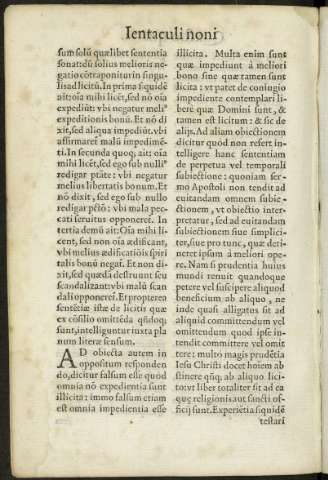 Ientaculi noni
sum solũ quælibet sententia
sonat dũ solius melioris ne-
gatio cõtraponitur in singu-
lis ad licitũ. In prima siquidẽ
ait: oĩa mihi licẽt, sed nõ oĩa
expediũt: vbi negatur meliꝰ
expeditionis bonũ. Et nõ di
xit, sed aliqua impediũt. vbi
affirmaref malũ impedimẽ-
ti. In secunda quoq, ait: oĩa
mihi licẽt, sed ego sub nulliꝰ
redigar ptãte: vbi negatur
melius libertatis bonum. Et
nõ dixit, sed ego sub nullo
redigar pctõ: vbi mala pec-
cati seruitus opponeref. In
tertia demũ ait: Oĩa mihi li-
cent, sed non oĩa ædificant,
vbi melius ædificatiõis spiri
talis bonũ negaf. Et non di-
xit, sed quædã destruunt seu
scandalizant: vbi malũ scan
dali opponeref. Et propterea
sentẽtiæ istæ de licitis quæ
ex cõsilio omittẽda qñdoq;
sunt, intelliguntur iuxta pla
num literæ sensum.
AD obiecta autem in
oppositum responden
do, dicitur falsum esse quod
omnia nõ expedientia sunt
illicita: immo falsum etiam
est omnia impedientia esse
illicita. Multa enim sunt
quæ impediunt á meliori
bono sine quæ tamen sunt
licita: vt patet de coniugio
impediente contemplari li-
berè quæ Domini sunt, &
tamen est licitum: & sic de
alijs. Ad aliam obiectionem
dicitur quod non refert in-
telligere hanc sententiam
de perpetua vel temporali
subiectione: quoniam ser-
mo Apostoli non tendit ad
euitandam omnem subie-
ctionem, vt obiectio inter-
pretatur, sed ad euitandam
subiectionem siue simplici-
ter, siue pro tunc, quæ deti-
neret ipsum á meliori ope-
re. Nam si prudentia huius
mundi renuit quandoque
petere vel suscipere aliquod
beneficium ab aliquo, ne
inde quasi alligatus sit ad
aliquid committendum vel
omittendum quod ipse in-
tendit committere vel omit
tere: multo magis prudẽtia
Iesu Christi docet hoĩem ab
stinere qñq; ab aliquo lici-
to: vt liber totaliter sit ad ea
quę religionis aut sancti of-
ficij sunt. Experiẽtia siquidẽ
testari